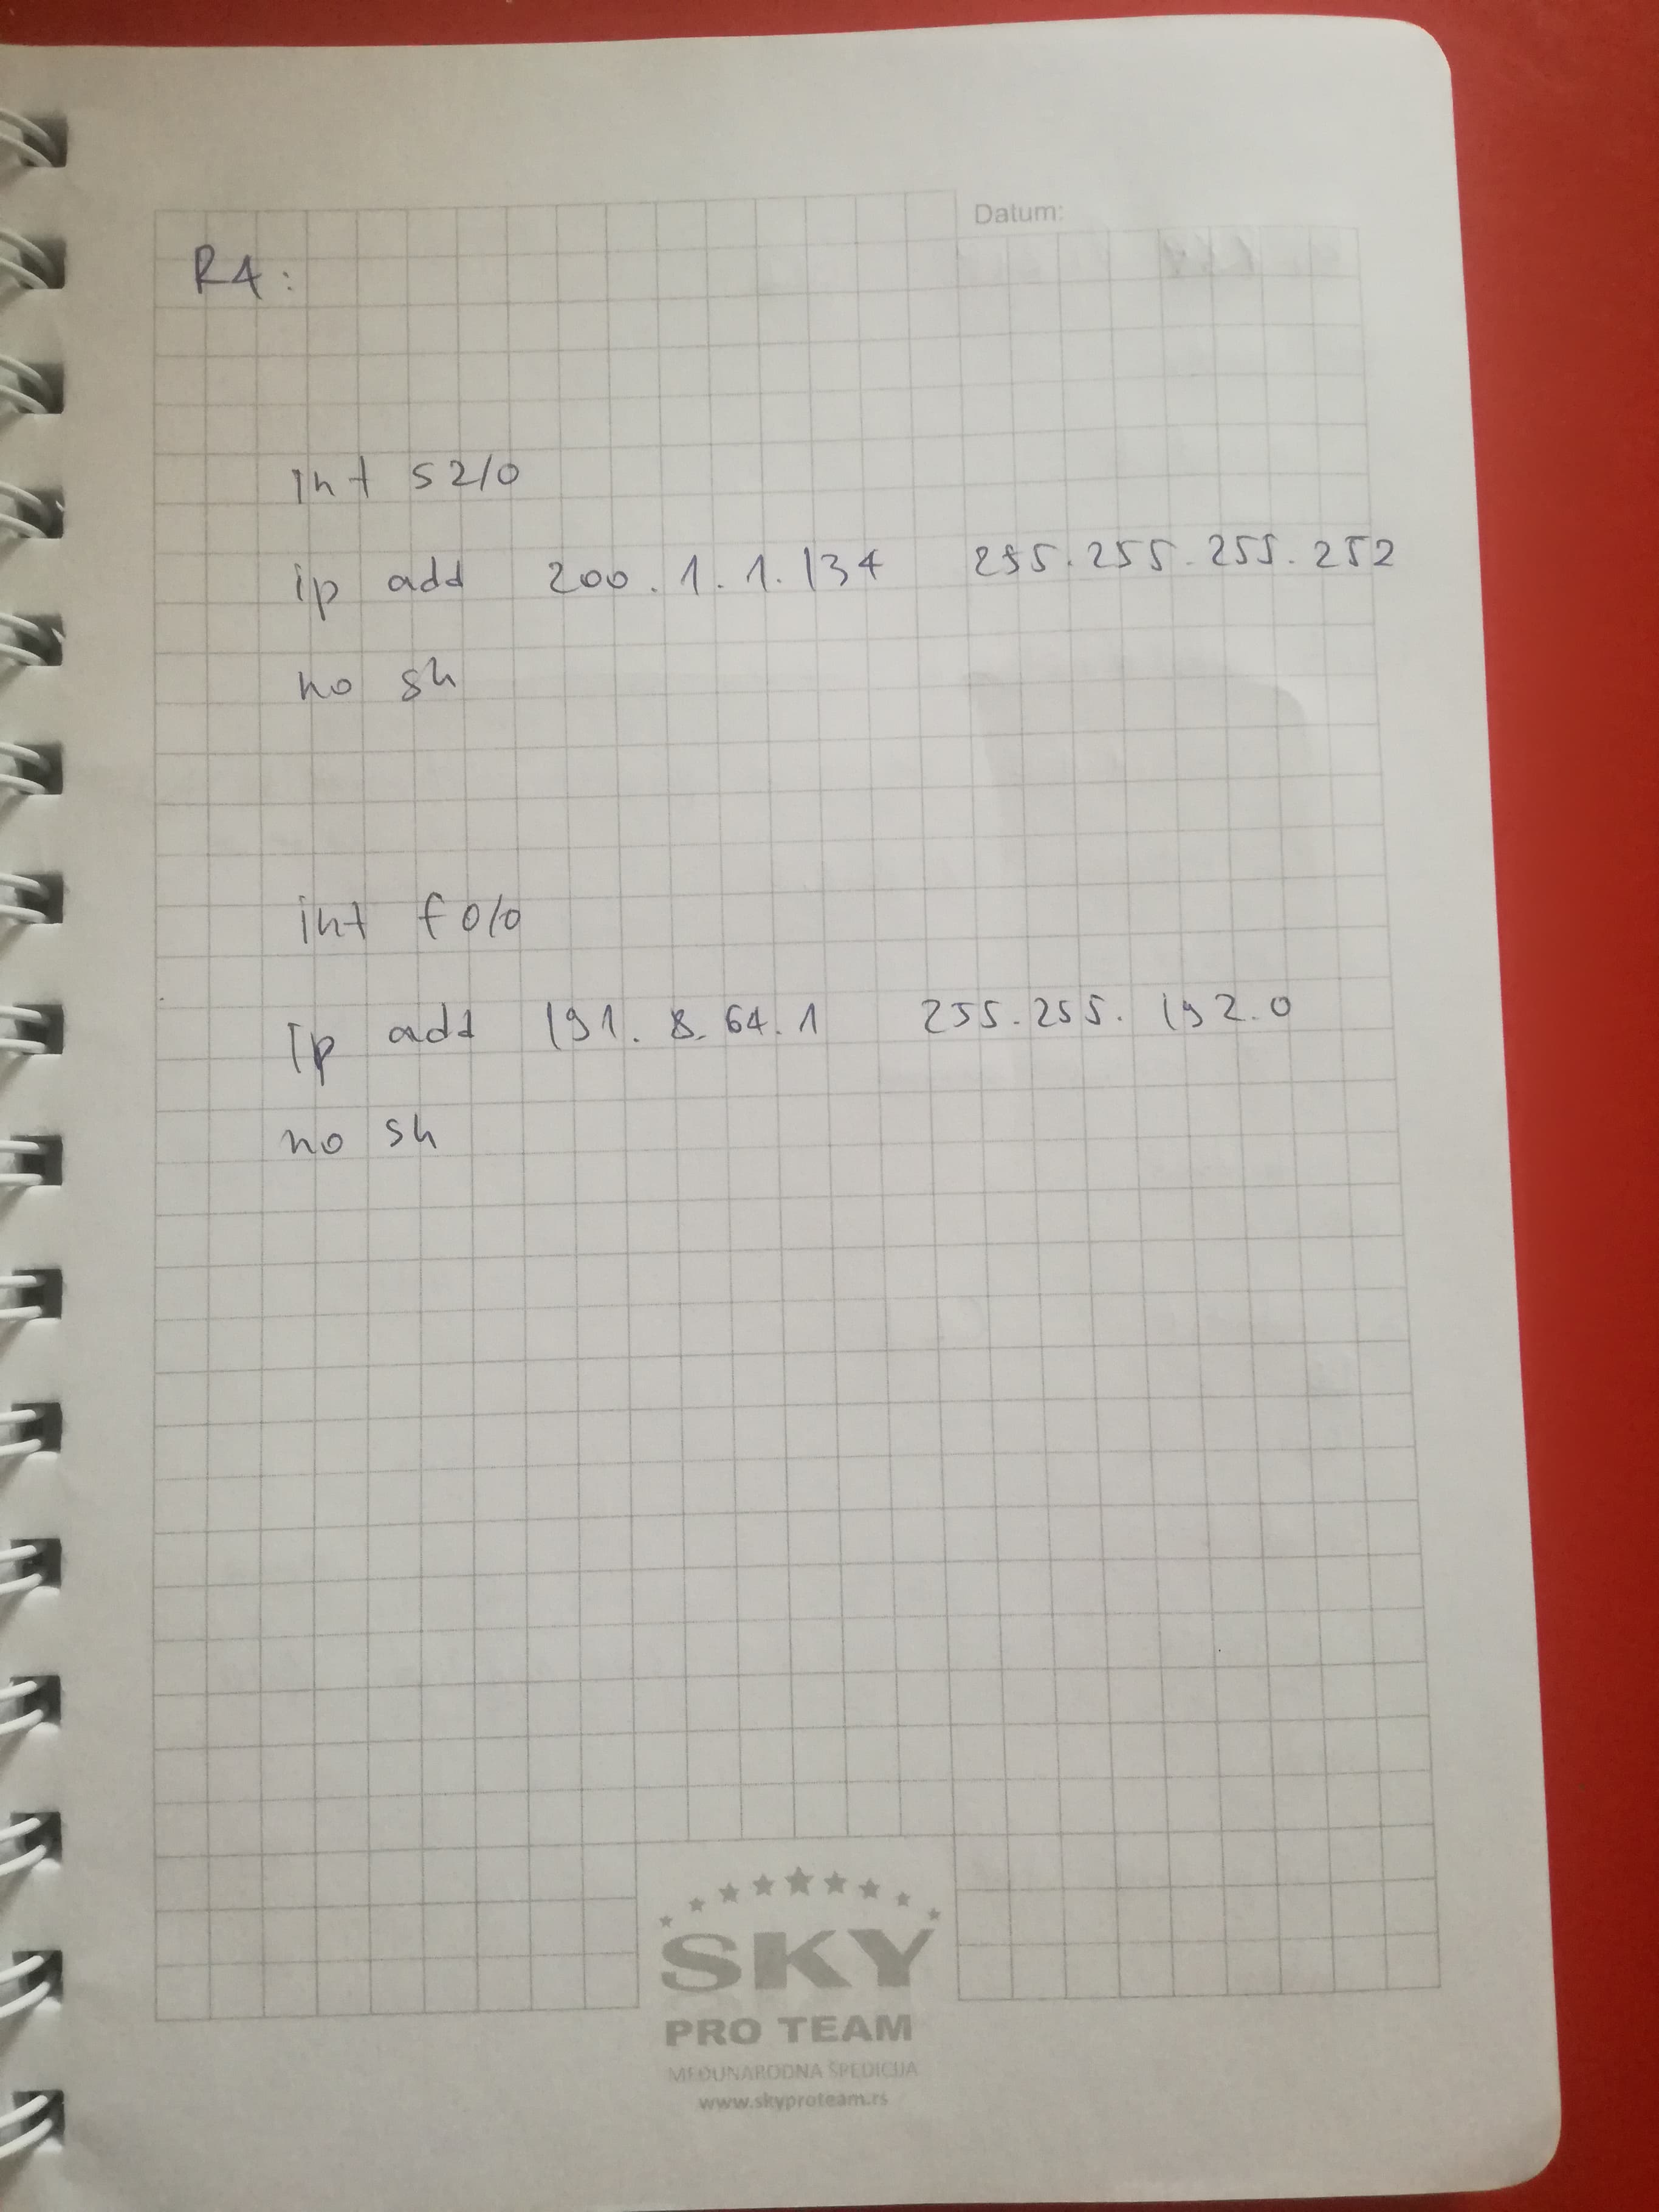 Datum:
R4:
int s2/0
ip add 200.1.1.134 255.255.255.252
no sh
int f0/0
ip add 191.8.64.1 255.255.192.0
no sh
SKY
PRO TEAM
MEĐUNARODNA ŠPEDICIJA
www.skyproteam.rs